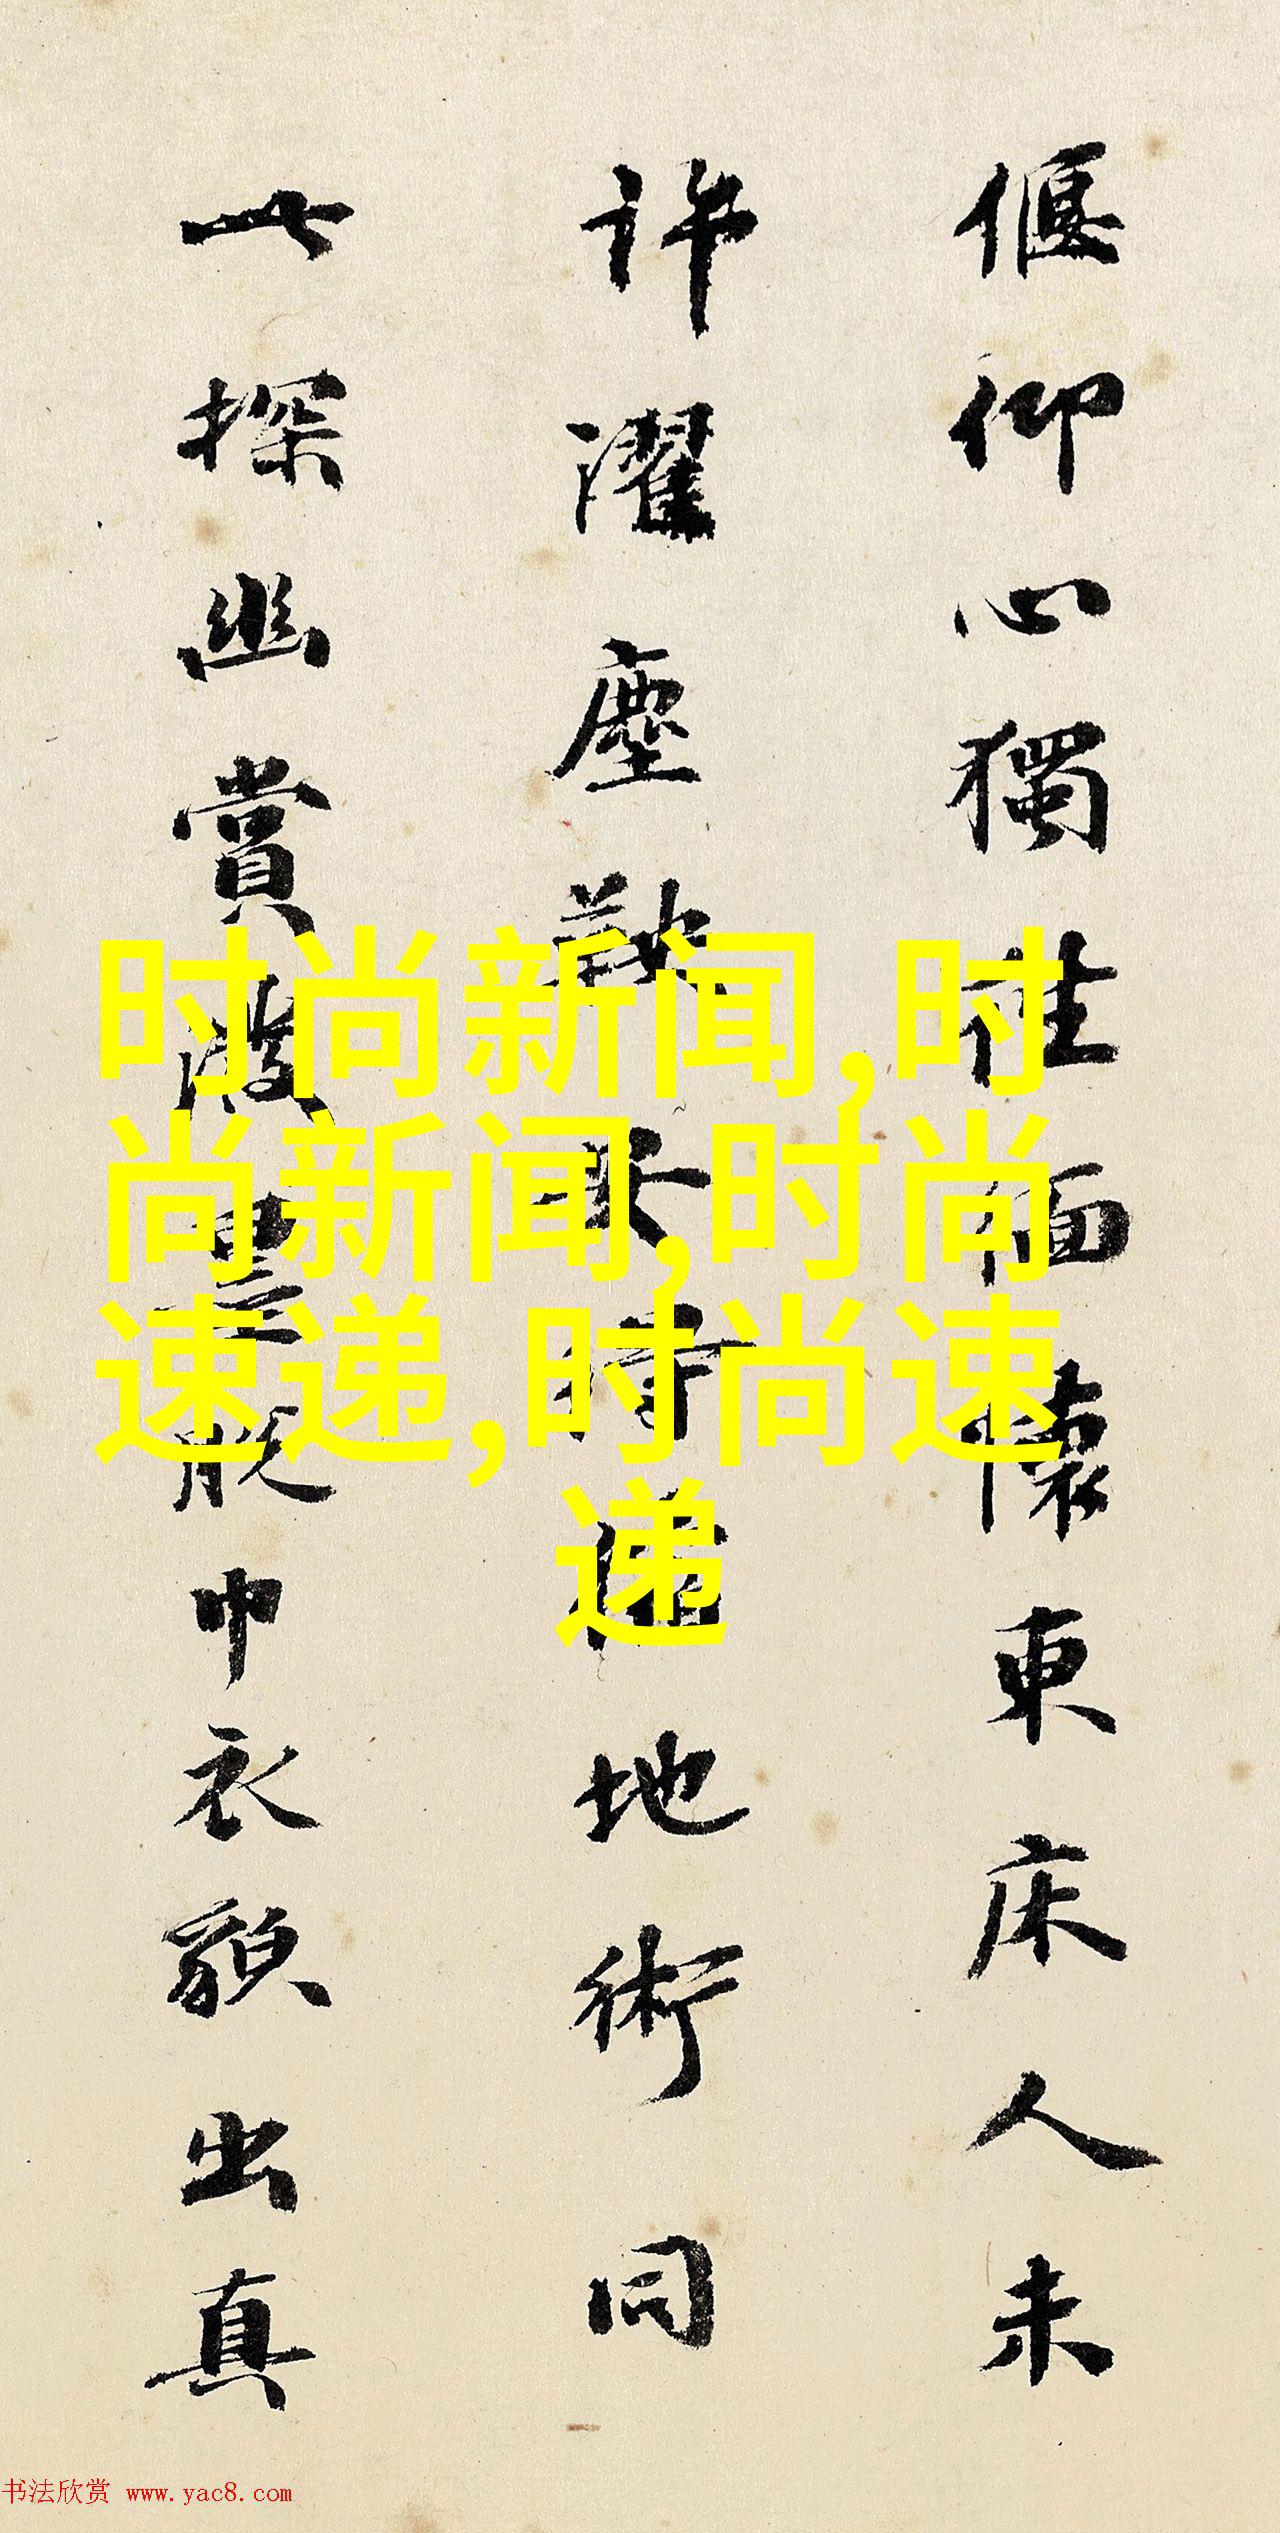 偃仰心獨往緬懷東床人未
許濯塵鞅 地術同
一探幽賞 脫巾衣貌出真
时尚新闻,时
尚新闻,时尚
速递,时尚速
递
书法欣赏 www.yac8.com